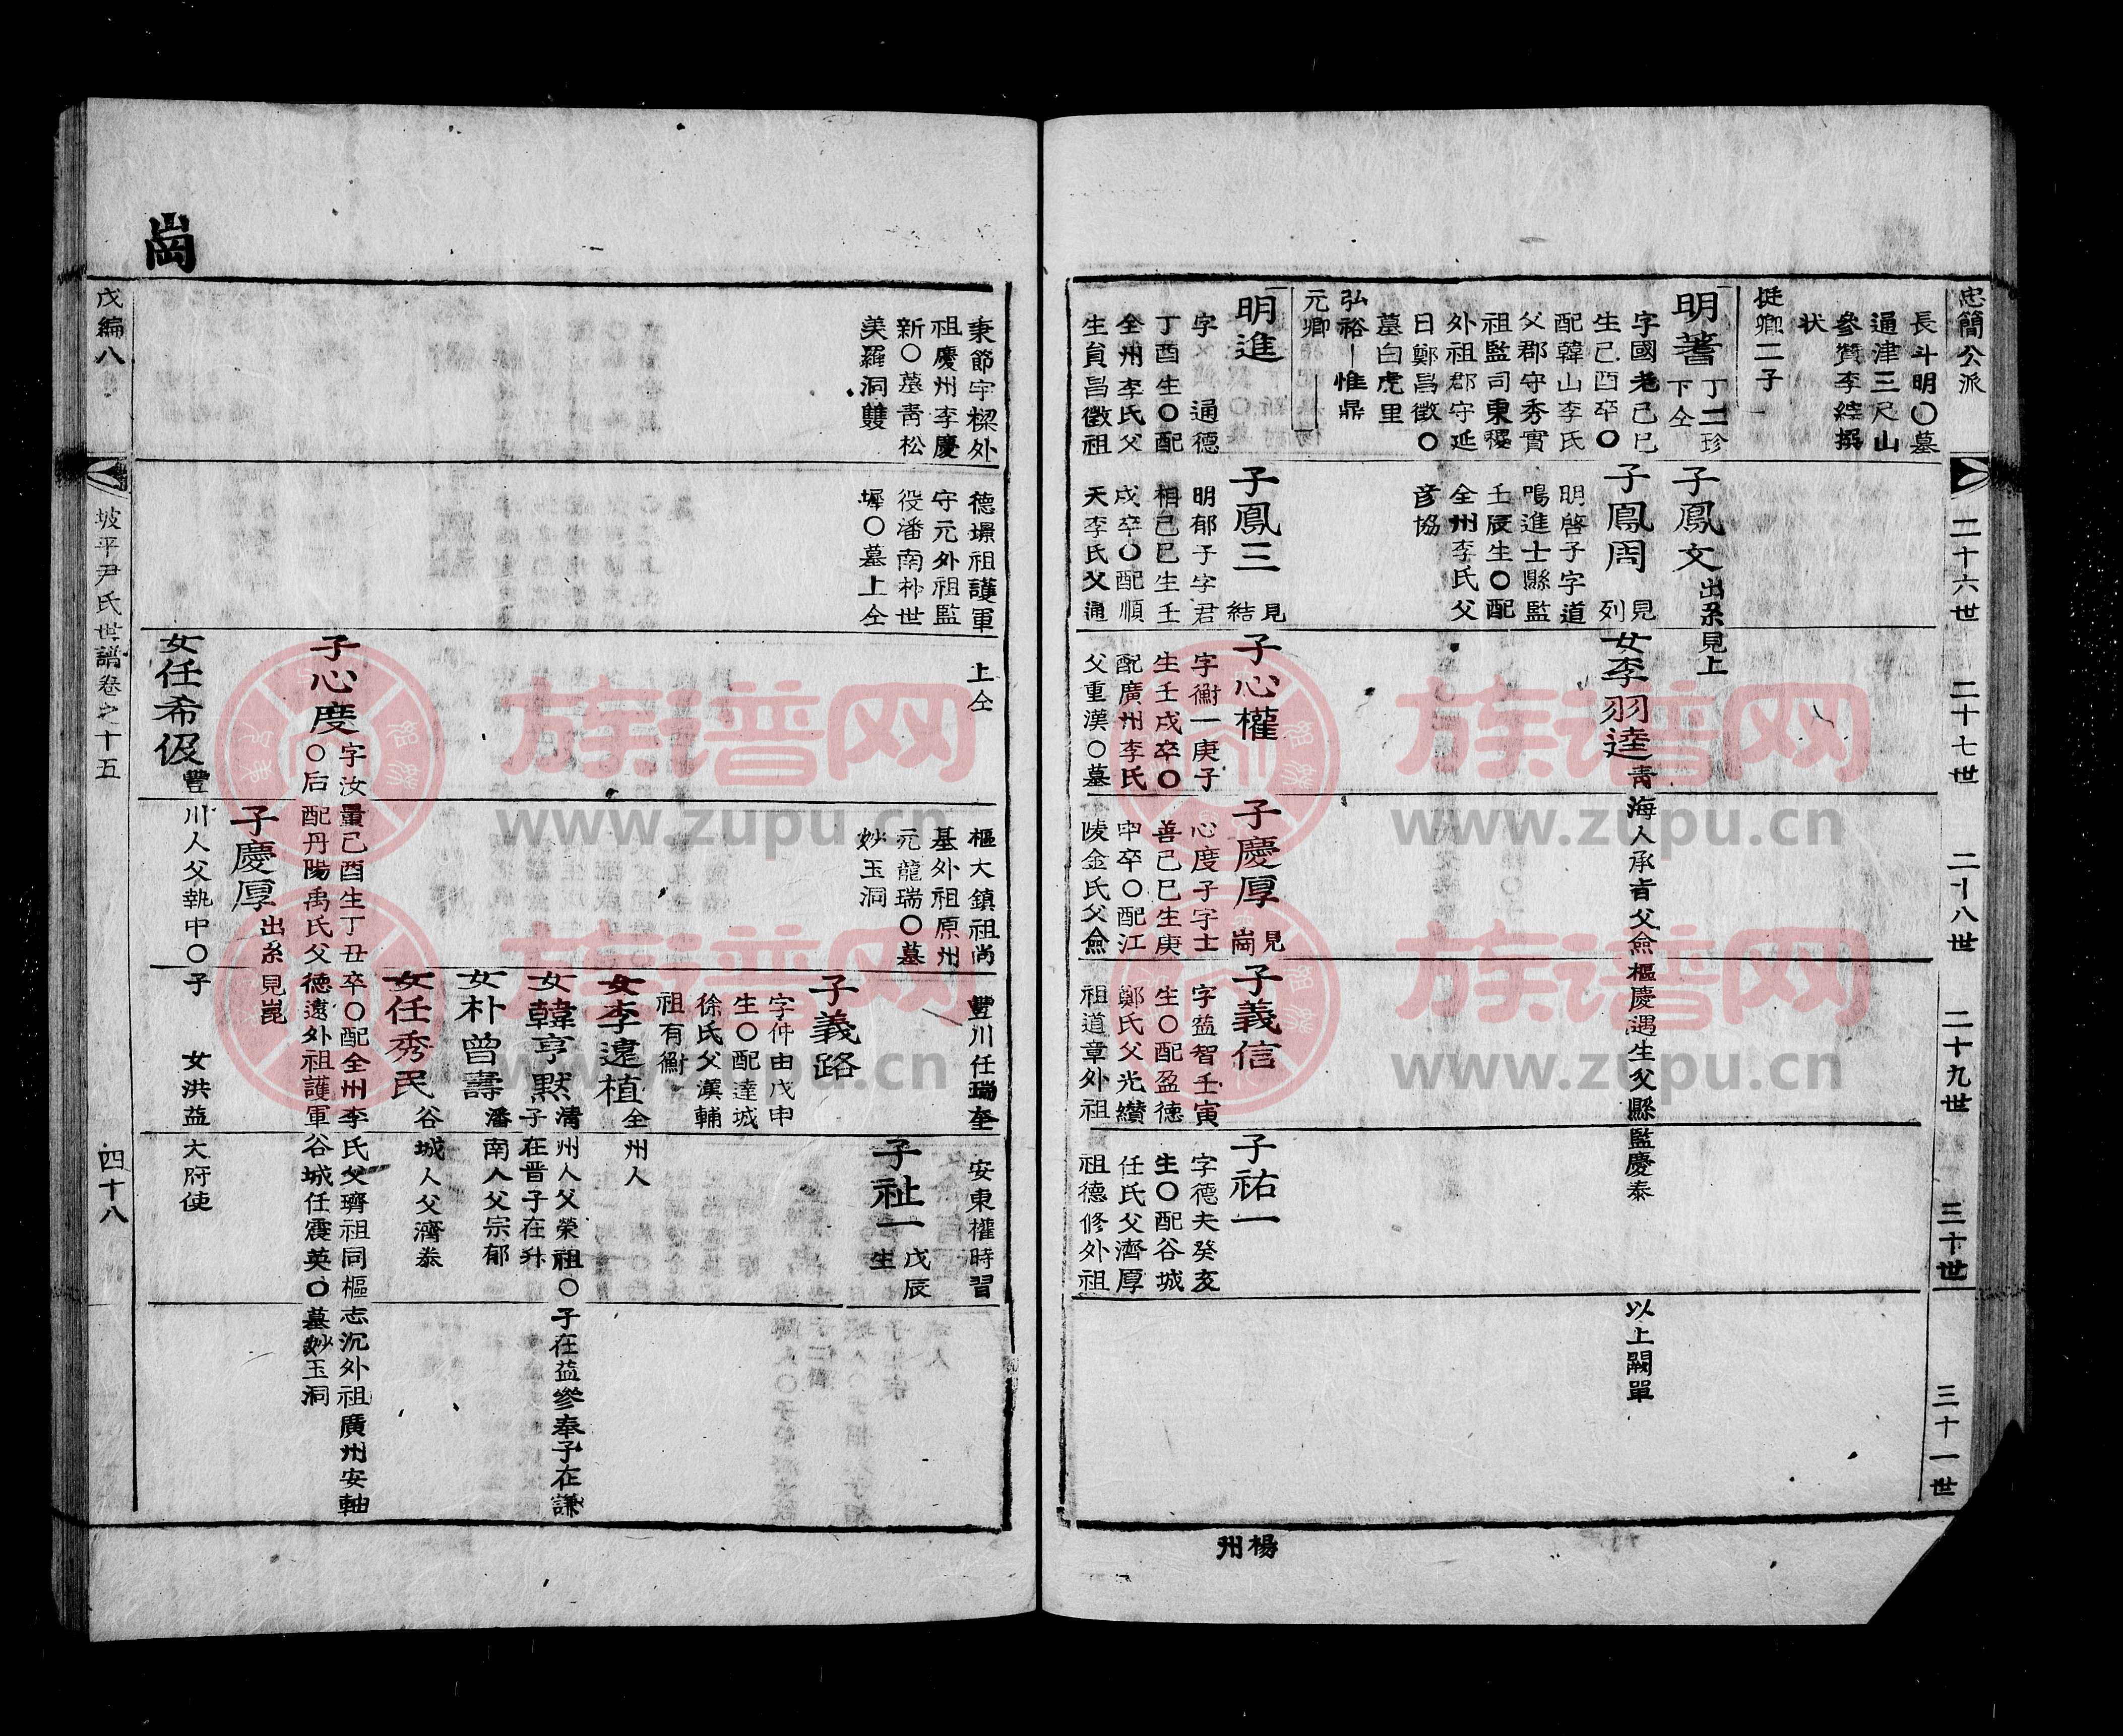 忠簡公派
二十六世
二十七世
二十八世
二十九世
三十世
三十一世
長斗明〇墓
通津三尺山
參贊李縡撰
狀
挺卿二子
明著
丁二珍
下仝
字國老己巳
生己酉卒〇
配韓山李氏
父郡守秀實
祖監司東稷
外祖郡守延
日鄭昌徵〇
墓白虎里
弘裕－惟鼎
元卿
明進
字通德
丁酉生〇配
全州李氏父
生員昌徵祖
子鳳文
出系見上
子鳳周
見
列
明啓子字道
鳴進士縣監
壬辰生〇配
全州李氏父
彦協
子鳳三
見
結
明郁子字君
相己巳生壬
戌卒〇配順
天李氏父通
女李羽逵
青海人承旨父僉樞慶遇生父縣監慶泰
以上闕單
子心權
字衡一庚子
生壬戌卒〇
配廣州李氏
父重漢〇墓
子慶厚
見
崗
心度子字士
善己巳生庚
申卒〇配江
陵金氏父僉
子義信
字益智壬寅
生〇配盈德
鄭氏父光纘
祖道章外祖
子祐一
字德夫癸亥
生〇配谷城
任氏父濟厚
祖德修外祖
楊
州
崗
秉節宇樑外
祖慶州李慶
新〇墓青松
美羅洞雙
德壕祖護軍
守元外祖監
役潘南朴世
墀〇墓上仝
上仝
樞大鎮祖尚
基外祖原州
元龍瑞〇墓
妙玉洞
豐川任瑞奎
安東權時習
子祉一
戊辰
生
子義路
字仲由戊申
生〇配達城
徐氏父漢輔
祖有衡
女李遠植
全州人
女韓亨默
清州人父榮祖〇子在益參奉子在謙
子在晋子在升
女朴曾壽
潘南人父宗郁
女任秀民
谷城人父濟泰
子心度
字汝量己酉生丁丑卒〇配全州李氏父濟祖同樞志沉外祖廣州安軸
〇后配丹陽禹氏父德遠外祖護軍谷城任震英〇墓妙玉洞
子慶厚
出系見崑
女任希伋
豐川人父執中〇子
女洪益大府使
戊編八
坡平尹氏世譜卷之十五
四十八
族谱网
www.zupu.cn
族谱网
www.zupu.cn
族谱网
www.zupu.cn
族谱网
www.zupu.cn